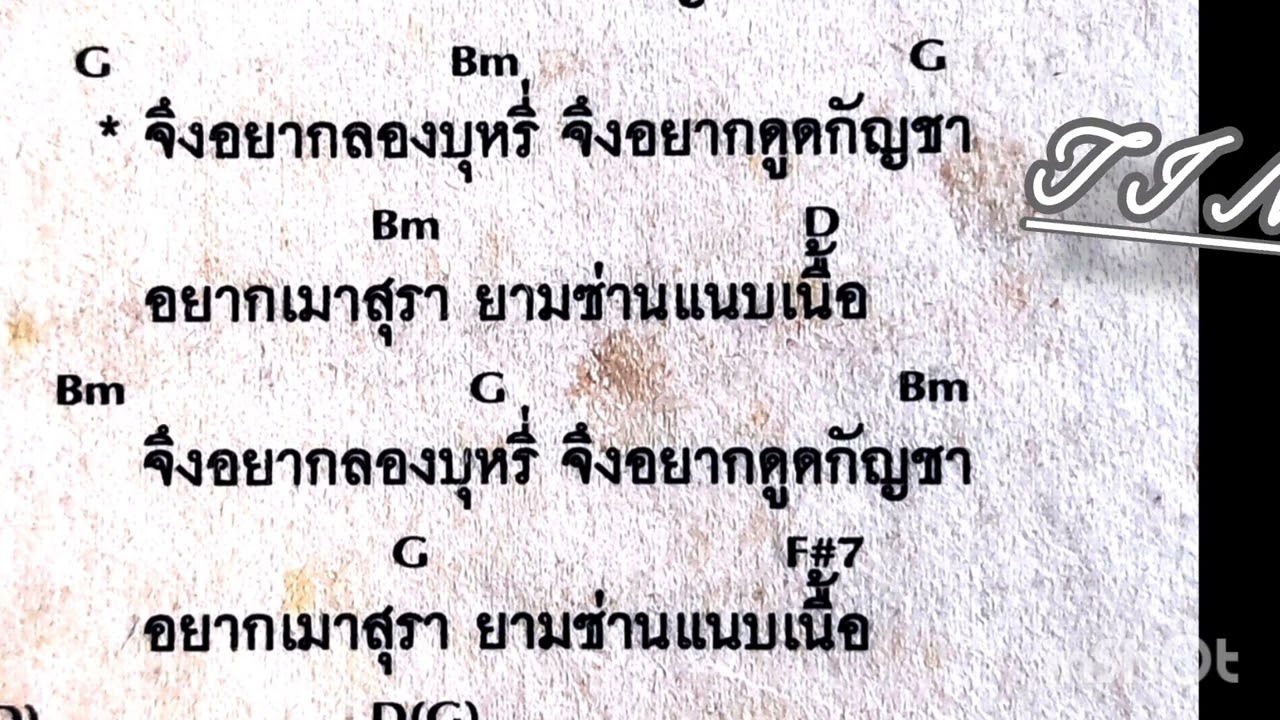 G Bm G
* จึงอยากลองบุหรี่ จึงอยากดูดกัญชา
Bm D
อยากเมาสุรา ยามซ่านแนบเนื้อ
Bm G Bm
จึงอยากลองบุหรี่ จึงอยากดูดกัญชา
G F#7
อยากเมาสุรา ยามซ่านแนบเนื้อ
D(G)
TIN
InShOt